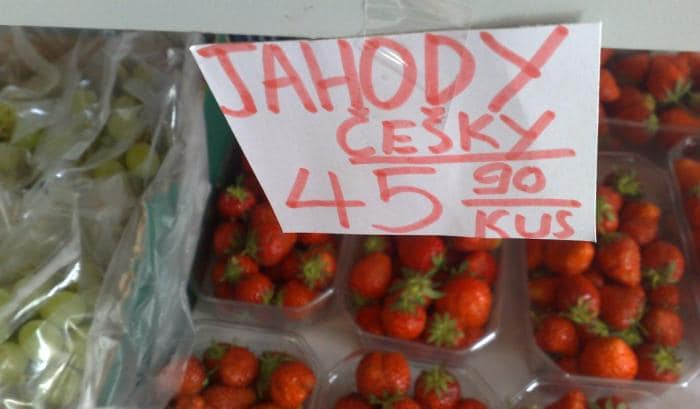 JAHODY
ČEŠKY
45 90
KUS